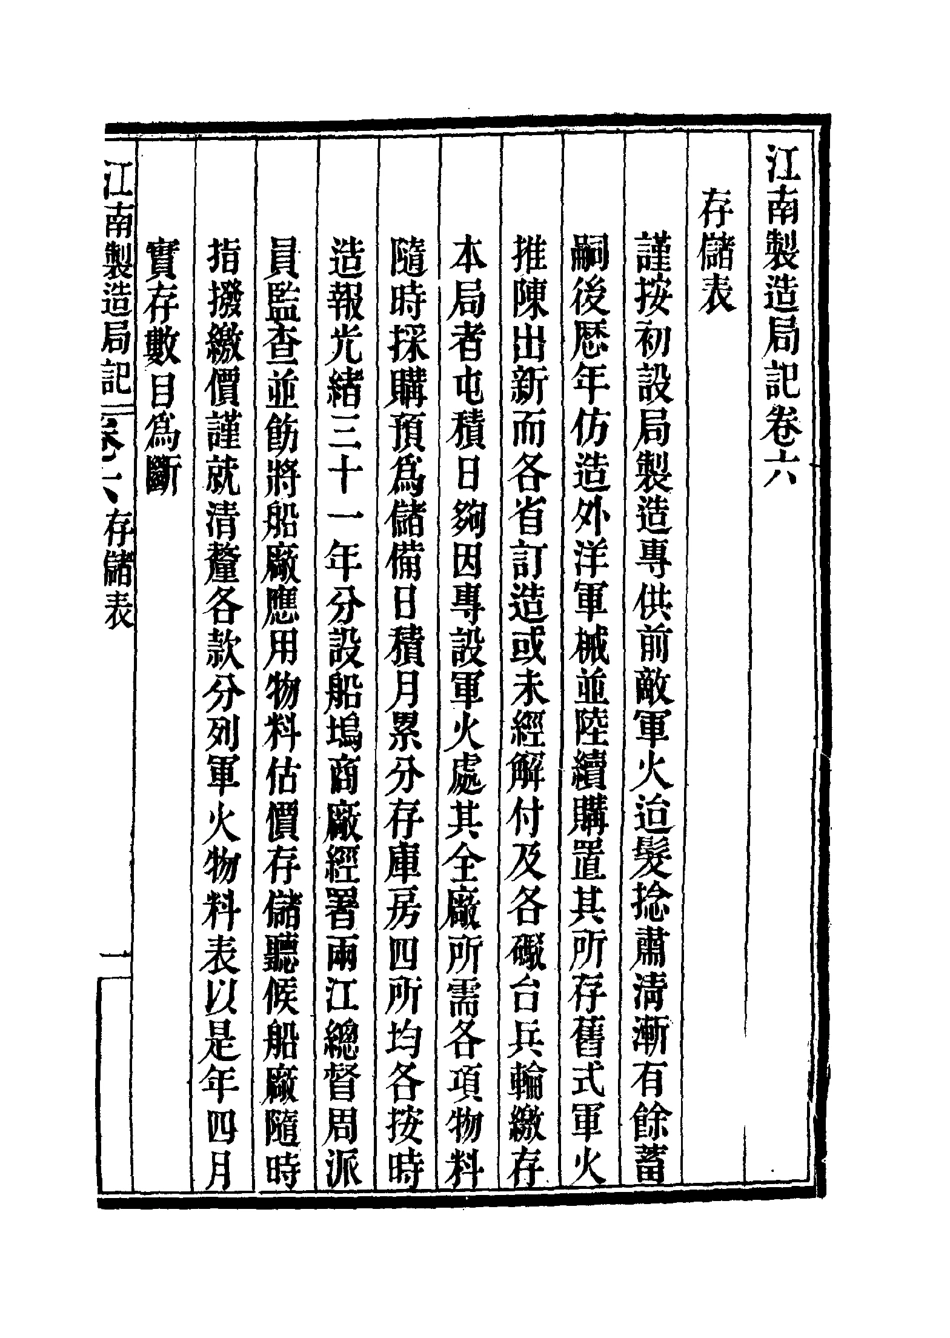 江南製造局記卷六
存儲表
謹按初設局製造專供前敵軍火迨髮捻肅清漸有餘蓄
嗣後歷年仿造外洋軍械並陸續購置其所存舊式軍火
推陳出新而各省訂造或未經解付及各礮台兵輪繳存
本局者屯積日夠因專設軍火處其全廠所需各項物料
隨時採購預爲儲備日積月累分存庫房四所均各按時
造報光緒三十一年分設船塢商廠經署兩江總督周派
員監查並飭將船廠應用物料估價存儲聽候船廠隨時
指撥繳價謹就清釐各款分列軍火物料表以是年四月
實存數目爲斷
江南製造局記 卷六 存儲表 一